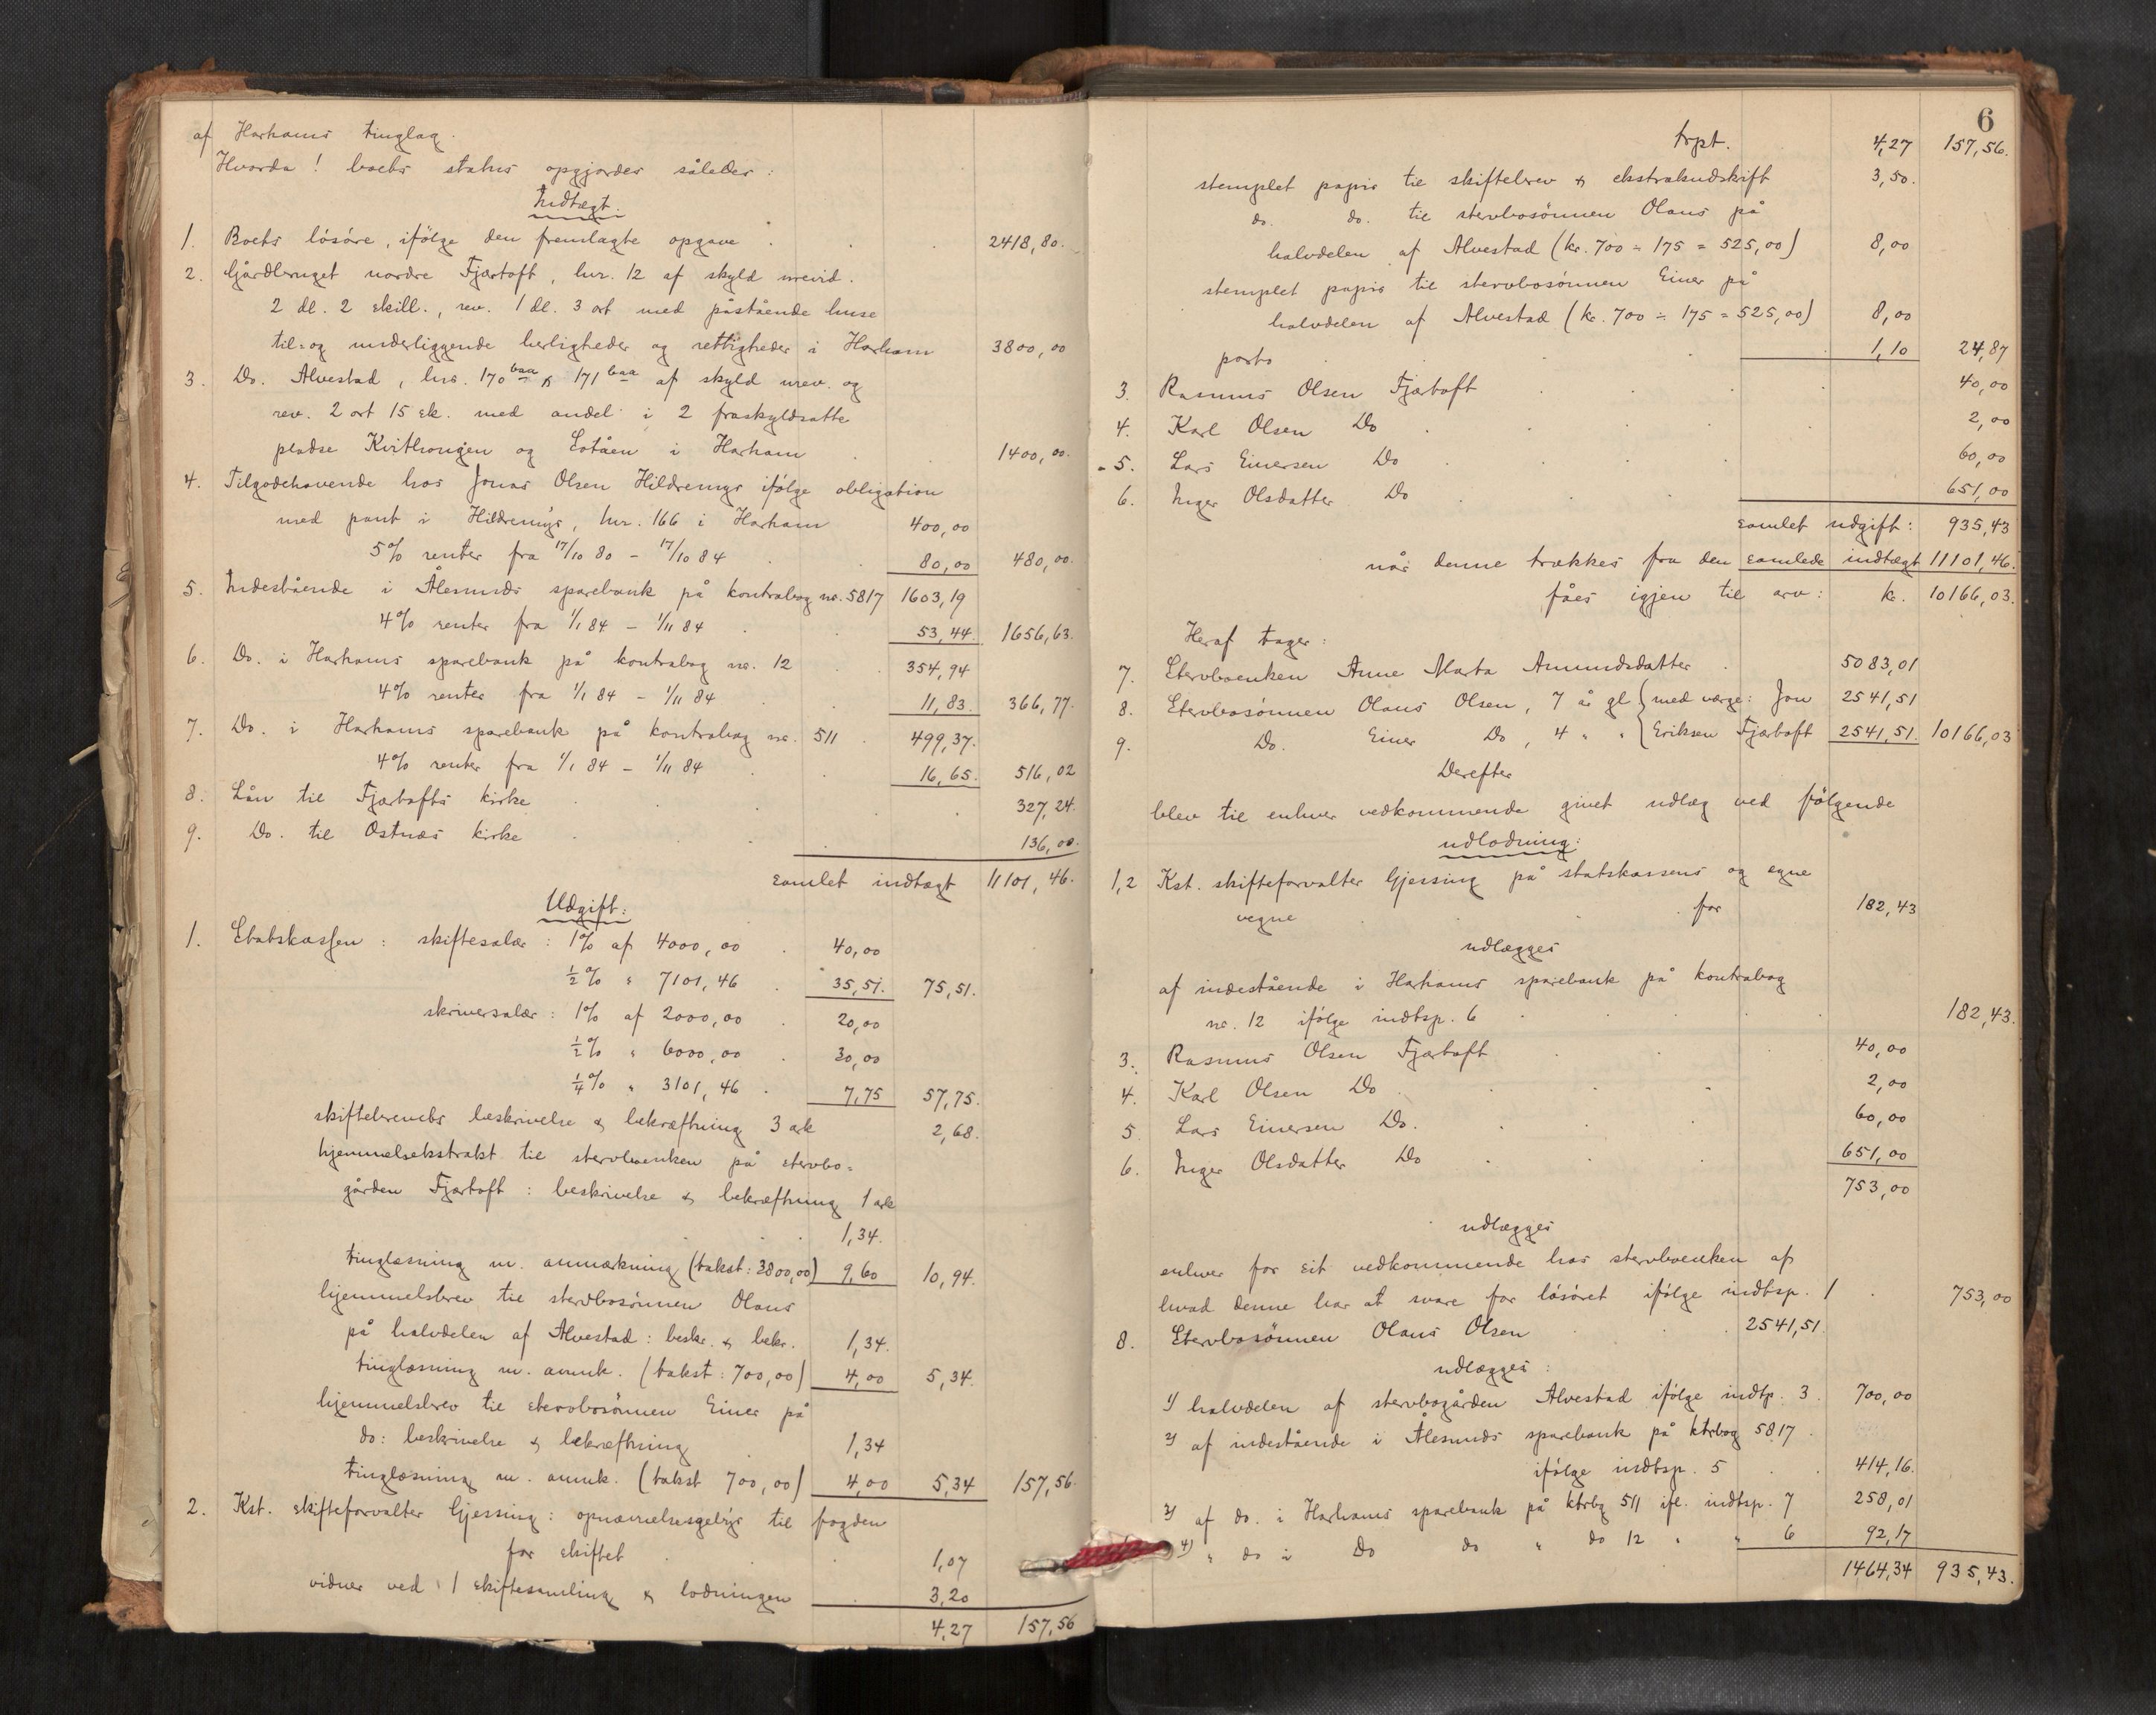 af Harhams tinglag.
Hvorda! boets status opgjordes således:
Indtægt.
1. Boets løsøre, ifölge den fremlagte opgave . . . 2418,80.
2. Gårdbruget nordre Fjærtoft, lnr. 12 af skyld urevid.
2 dl. 2 skill., rev. 1 dl. 3 ort med påstående huse
til- og underliggende herligheder og rettigheder i Harham 3800,00
3. Do. Alvestad, lnr. 170 baa & 171 baa af skyld urev. og
rev. 2 ort 15 sk. med andel i 2 fraskyldsatte
pladse Kvithougen og Lotåen i Harham 1400,00.
4. Tilgodehavende hos Jonas Olsen Hildrenys ifölge obligation
med pant i Hildrenys, lnr. 166 i Harham 400,00
5% renter fra 17/10 80 - 17/10 84 . . 80,00 480,00.
5. Indestående i Ålesunds sparebank på kontrabog no. 5817 1603,19
4% renter fra 1/1 84 - 1/11 84 . . 53,44. 1656,63.
6. Do. i Harhams sparebank på kontrabog no. 12 . . 354,94
4% renter fra 1/1 84 - 1/11 84 . . 11,83. 366,77.
7. Do. i Harhams sparebank på kontrabog no. 511 . 499,37.
4% renter fra 1/1 84 - 1/11 84 . . 16,65. 516,02
8. Lån til Fjærtofts kirke . . . 327,24.
9. Do. til Østnæs kirke . . . 136,00.
samlet indtægt 11101,46.
Udgift:
1. Statskassen: skiftesalær: 1% af 4000,00 . 40,00
½% " 7101,46 . 35,51. 75,51.
skriversalær: 1% af 2000,00 . 20,00
½% " 6000,00 . 30,00
¼% " 3101,46 . 7,75 57,75.
skiftebrevets beskrivelse & bekræftning 3 ark 2,68.
hjemmelsekstrakt til stervboenken på stervbo-
gården Fjærtoft: beskrivelse & bekræftning 1 ark
1,34.
tinglæsning m. anmærkning (takst: 3800,00) 9,60 10,94.
hjemmelsbrev til stervbosönnen Olaus
på halvdelen af Alvestad: beskr. & bekr. 1,34.
tinglæsning m. anmk. (takst: 700,00) 4,00 5,34.
hjemmelsbrev til stervbosönnen Einer på
do: beskrivelse & bekræftning 1,34
tinglæsning m. anmk. (takst 700,00) 4,00 5,34 157,56.
2. Kst. skifteforvalter Gjessing: opnævnelsesgebyr til fogden
for skiftet . . 1,07
vidner ved 1 skiftesamling & lodningen . 3,20
4,27 157,56
6
Trpt. 4,27 157,56.
stemplet papir til skiftebrev & ekstraktudskrift 3,50.
do. do. til stervbosönnen Olaus på
halvdelen af Alvestad (kr. 700 ÷ 175 = 525,00) 8,00
stemplet papir til stervbosönnen Einer på
halvdelen af Alvestad (kr. 700 ÷ 175 = 525,00) 8,00
porto . . . 1,10 24,87
3. Rasmus Olsen Fjærtoft . . . 40,00
4. Karl Olsen Do . . . 2,00
5. Lars Einersen Do . . . 60,00
6. Inger Olsdatter Do . . 651,00
samlet udgift: 935,43
når denne trækkes fra den samlede indtægt 11101,46.
fåes igjen til arv: kr. 10166,03.
Heraf tager:
7. Stervboenken Anne Marta Amundsdatter . 5083,01
8. Stervbosönnen Olaus Olsen, 7 år gl { med værge: Jon 2541,51
9. Do. Einer Do, 4 " " { Eriksen Fjærtoft 2541,51. 10166,03
Derefter
blev til enhver vedkommende givet udlæg ved fölgende
udlodning:
1,2 Kst. skifteforvalter Gjessing på statskassens og egne
vegne . . for 182,43
udlægges
af indestående i Harhams sparebank på kontrabog
no. 12 ifölge indtsp. 6 . . . 182,43.
3. Rasmus Olsen Fjærtoft . . 40,00
4. Karl Olsen Do . . 2,00
5. Lars Einersen Do. . . 60,00
6. Inger Olsdatter Do . . 651,00
753,00
udlægges
enhver for sit vedkommende hos stervboenken af
hvad denne har at svare for løsøret ifölge indtsp. 1 . 753,00
8. Stervbosönnen Olaus Olsen . . 2541,51.
udlægges:
1) halvdelen af stervbogården Alvestad ifölge indtp. 3. 700,00
2) af indestående i Ålesunds sparebank på ktrbog 5817 .
ifölge indtsp. 5 . . 414,16.
3) af do. i Harhams sparebank på ktrbg 511 ifl. indtsp. 7 258,01
4) " do i Do do " do 12 " " 6 92,17
1464,34 935,43.